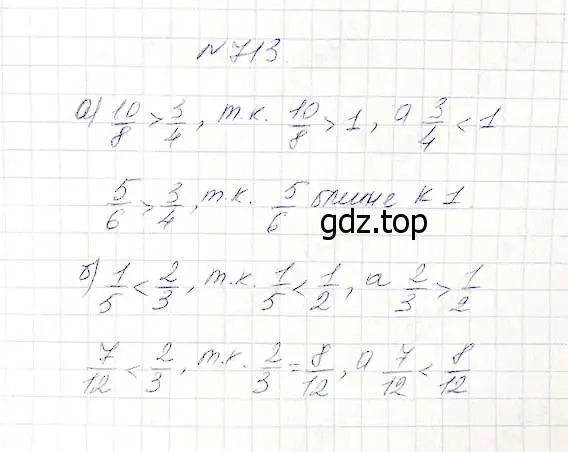 №713
а) 10/8 > 3/4, т.к. 10/8 > 1, а 3/4 < 1
5/6 > 3/4, т.к. 5/6 ближе к 1.
gdz.top
б) 1/5 < 2/3, т.к. 1/5 < 1/2, а 2/3 > 1/2
7/12 < 2/3, т.к. 2/3 = 8/12, а 7/12 < 8/12